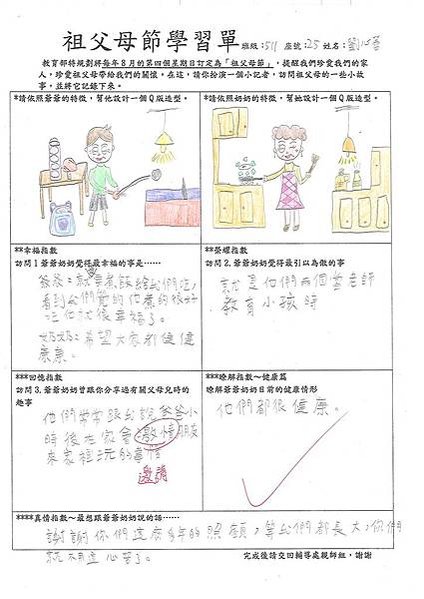 祖父母節學習單 班級：511 座號：25 姓名：劉心
教育部特規劃將每年8月的第四個星期日訂定為「祖父母節」，提醒我們珍愛我們的家
人，珍愛祖父母帶給我們的關懷。在這，請你扮演一個小記者，訪問祖父母的一些小故
事，並將它記錄下來。
*請依照爺爺的特徵，幫他設計一個Q版造型。
*請依照奶奶的特徵，幫她設計一個Q版造型。
**幸福指數
訪問1爺爺奶奶覺得最幸福的事是……
爺爺：就是煮飯給我們吃，
看到我們說他煮的很好
吃他就很幸福了。
奶奶：希望大家都健健
康康。
**榮耀指數
訪問2.爺爺奶奶覺得最引以為傲的事
就是他們兩個當老師
教育小孩時
***回憶指數
訪問3.爺爺奶奶曾跟你分享過有關父母兒時的
趣事
他們常常跟我說爸爸小
時後在家會激情朋友
來家裡玩的事情
邀請
***瞭解指數～健康篇
瞭解爺爺奶奶目前的健康情形
他們都很健康。
****真情指數～最想跟爺爺奶奶說的話……
謝謝你們這麼多年的照顧，等我們都長大，你們
就不用這心苦了。
完成後請交回輔導處親師組，謝謝